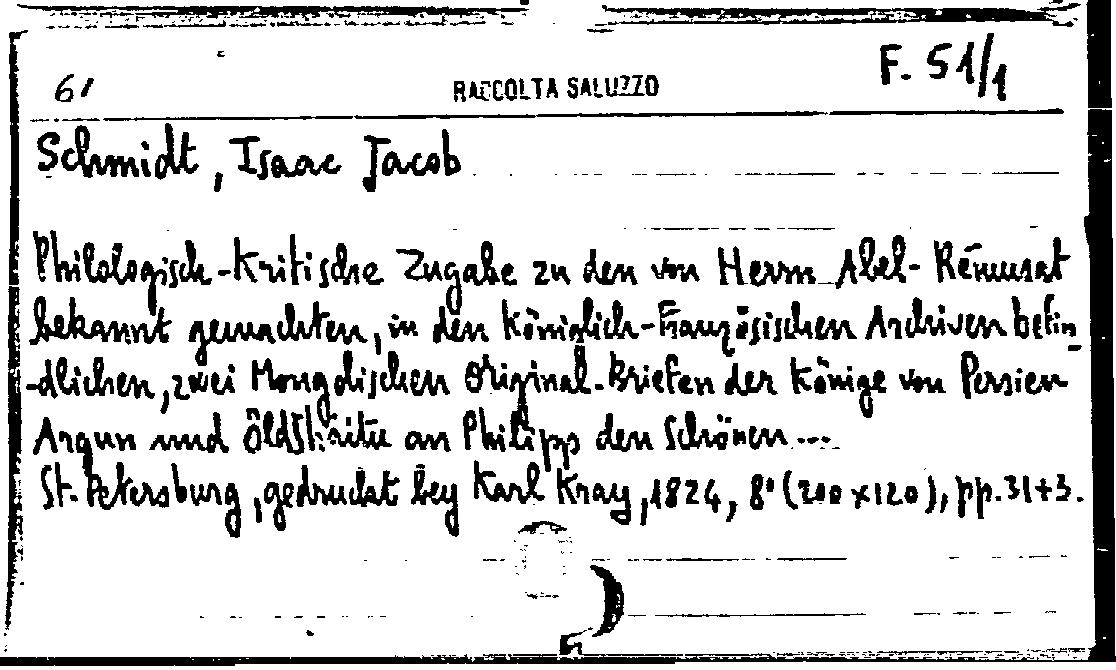 61 RACCOLTA SALUZZO F. 51/1
Schmidt, Isaac Jacob
Philologisch-Kritische Zugabe zu den von Herrn Abel-Rémusat
bekannt gemachten, in den Königlich-Französischen Archiven befin
-dlichen, zwei Mongolischen Original-Briefen der Könige von Persien
Argun und an Philipp den Schönen...
St. Petersburg, gedruckt bey Karl Kray, 1824, 8° (200 x 120), pp. 31+3.